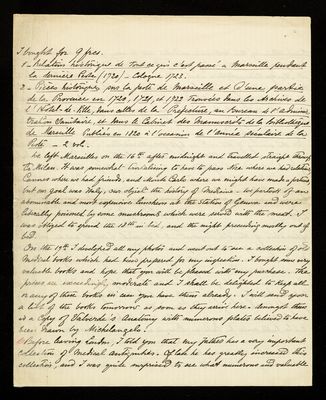 I bought for 9 frcs.
1 - Relation historique de tout ce qui s'est passé à Marseille pendant
la dernière Peste (1720) - Cologne 1723.
2 - Pièces historiques sur la peste de Marseille et d'une partie
de la Provence en 1720, 1721, et 1722 Trouvées dans les Archives de
l'Hotel de Ville, dans celles de la Prefecture, au Bureau de l'Admini-
stration Sanitaire, et dans le Cabinet des Manuscrits de la bibliothèque
de Marseille Publiées en 1820 à l'occasion de l'année séculaire de la
Peste - 2 vols.
We left Marseilles on the 16th after midnight and travelled straight through
to Milan. It was somewhat tantalising to have to pass Nice where we had relations,
Cannes where we had friends, and Monte Carlo where we might have made a fortune
but our goal was Italy, our object the history of Medicine - we partook of an
abominable and most expensive luncheon at the Station of Genoa and were
literally poisoned by some mushrooms which were served with the meat. I
was obliged to spend the 18th in bed, and the night preceding mostly out of
bed.
On the 19th I developed all my photos and went out to see a collection of old
Medical books which had been prepared for my inspection. I bought some very
valuable books and hope that you will be pleased with my purchase. The
prices are exceedingly moderate and I shall be delighted to keep all
or any of them books in case you have them already. I will send you
a list of the books tomorrow as soon as they arrive here. Amongst them
is a Copy of Valverde's Anatomy with numerous plates believed to have
been drawn by Michelangelo.
Before leaving London, I told you that my father has a very important
collection of Medical antiquities. Of late he has greatly increased this
collection, and I was quite surprised to see what numerous and valuable